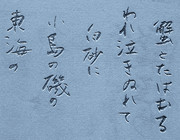 東海の
小島の磯の
白砂に
われ泣きぬれて
蟹とたはむる